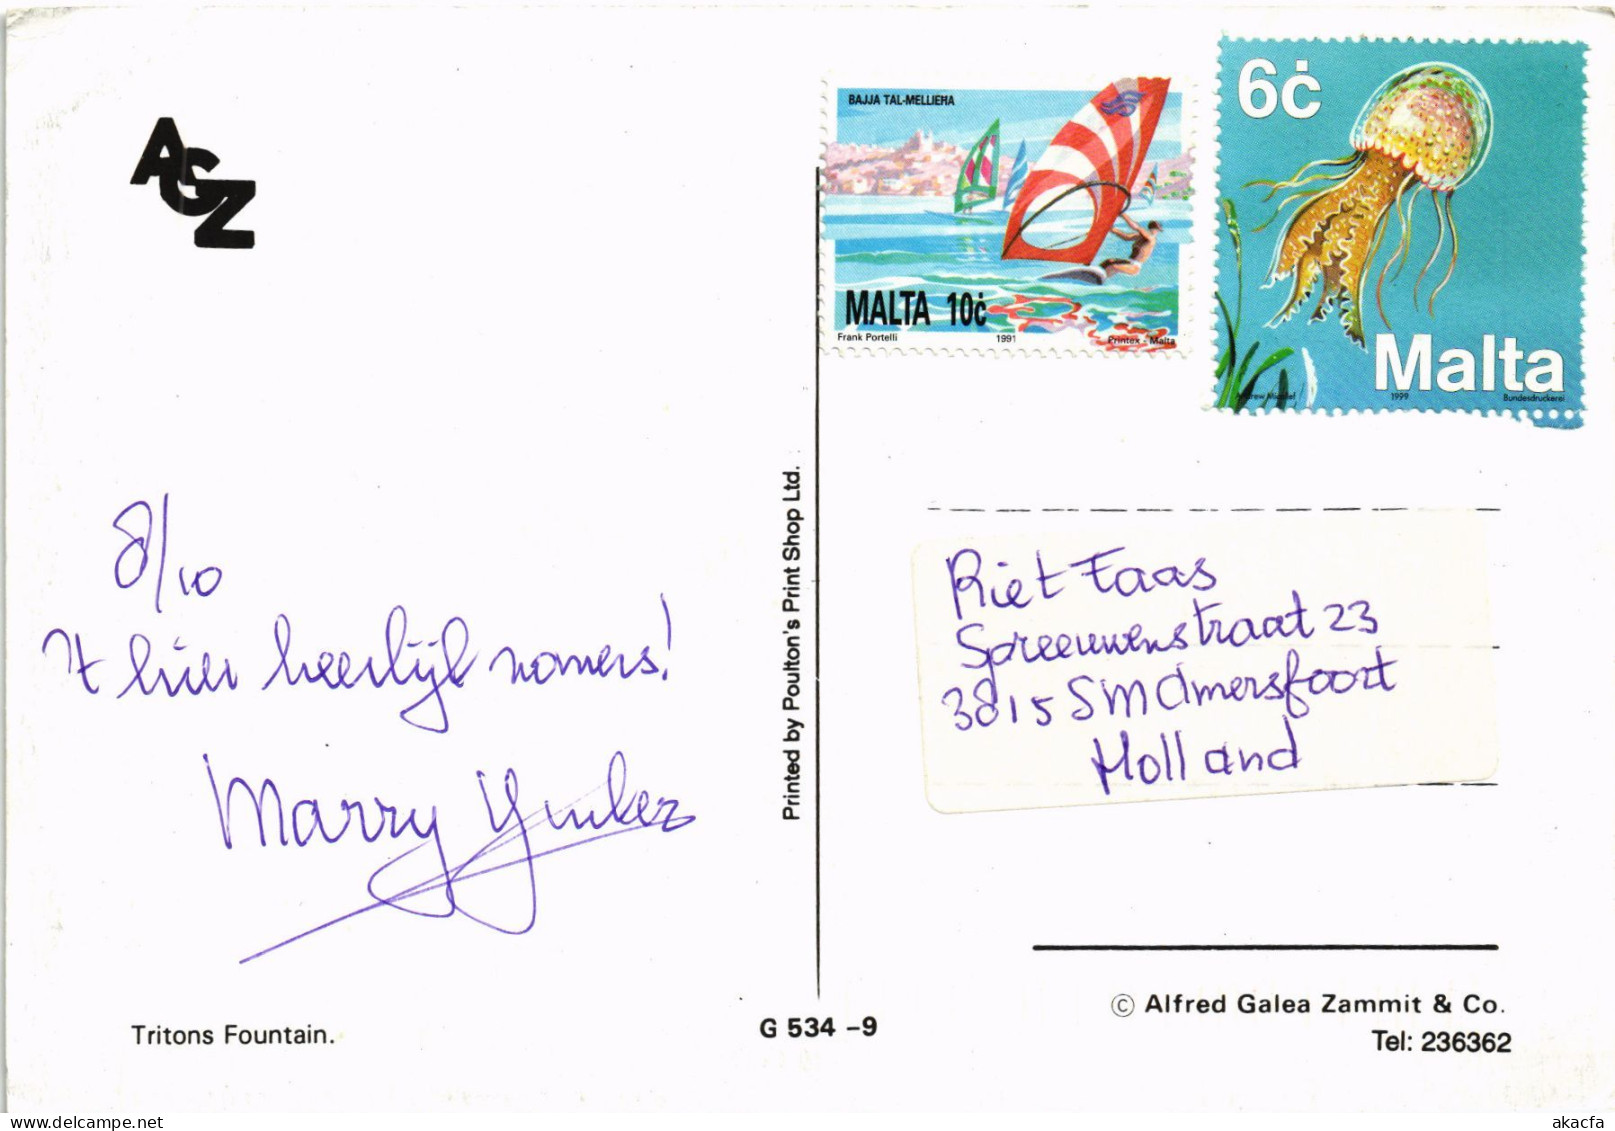 AGZ
8/10
't hier heerlijk zomers!
Marry
Tritons Fountain.
Printed by Poulton's Print Shop Ltd.
G 534 -9
BAJJA TAL-MELLIEĦA
MALTA 10ċ
Frank Portelli 1991 Printex - Malta
6ċ
Malta
Andrew Micallef 1999 Bundesdruckerei
Riet Faas
Spreeuwenstraat 23
3815 SM Amersfoort
Holland
© Alfred Galea Zammit & Co.
Tel: 236362
akacfa